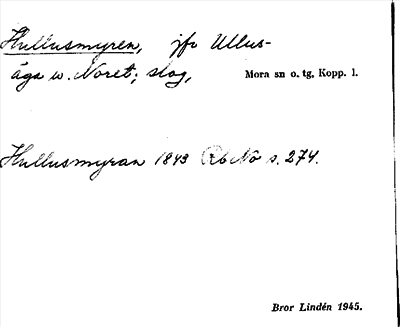 Hullusmyren, jfr Ullus-
äga u. Noret; slog,
Mora sn o. tg, Kopp. l.
Hullusmyran 1843 Rb No s. 274.
Bror Lindén 1945.